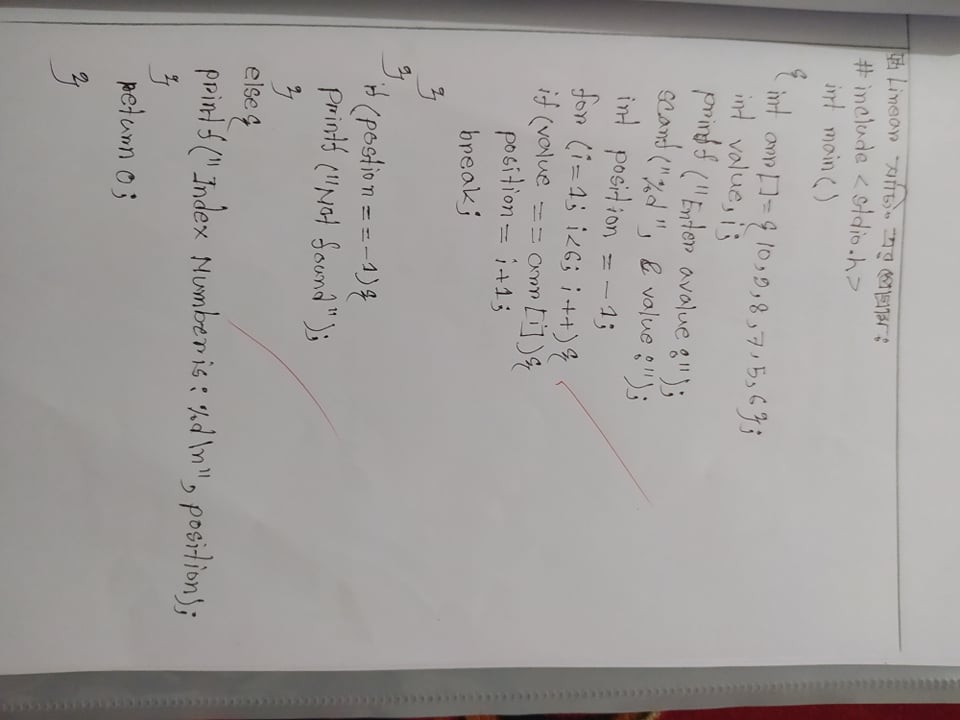 Linear সার্চিং এর প্রোগ্রাম:
# include < stdio.h>
int main()
{ int arr[] = { 10,9,8,7,5,6};
int value,i;
printf ("Enter avalue :");
scanf ("%d", & value :");
int position = -1;
for (i=1; i<6; i++){
if (value == arr[i]){
position = i+1;
break;
}
}
if (postion == -1){
printf ("Not found");
}
else{
printf ("Index Number is: %d\n", position);
}
return 0;
}